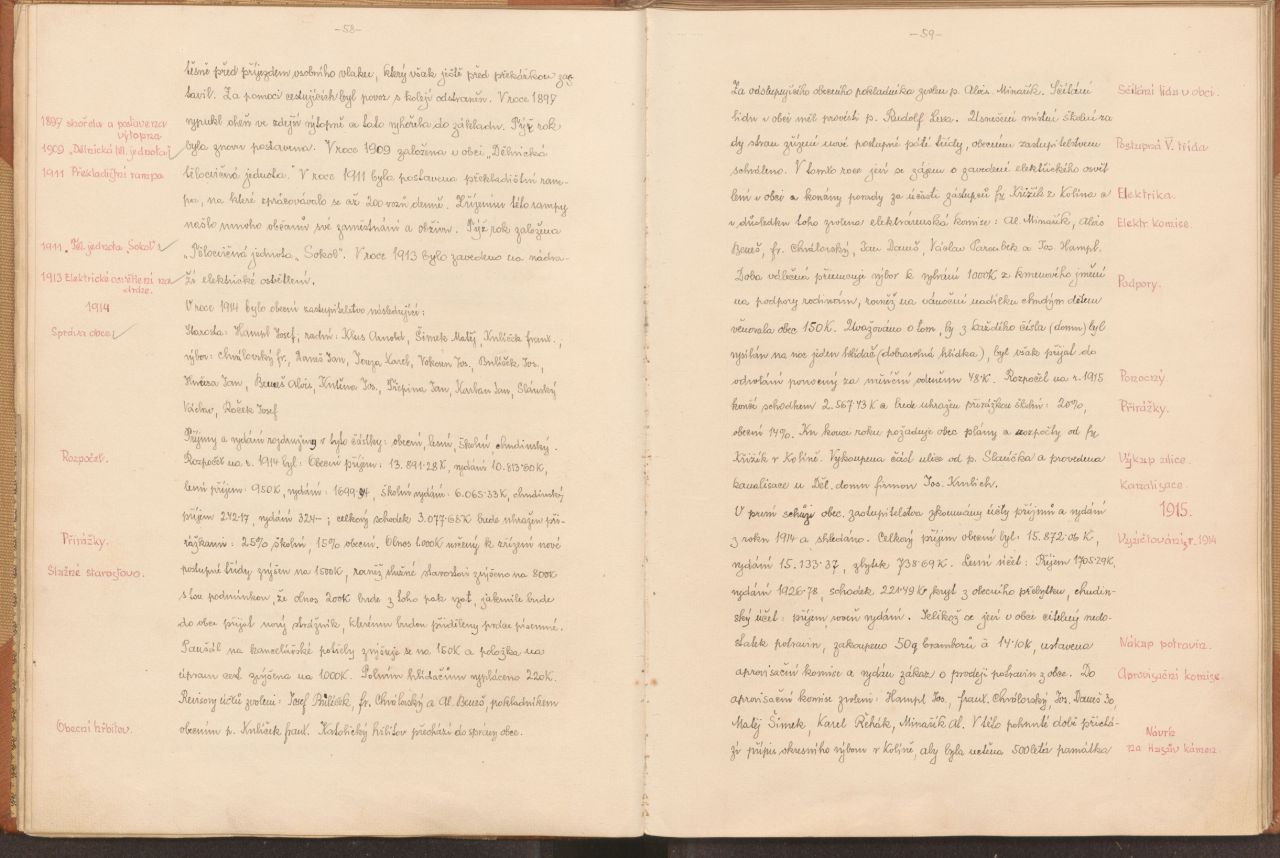 -58-
těsně před příjezdem osobního vlaku, který však ještě před překážkou za-
stavil. Za pomoci cestujících byl povoz s kolejí odstraněn. V roce 1897
vypukl oheň ve zdejší výtopně a tato vyhořela do základu. Týž rok
1897 shořela a postavena
výtopna
byla znovu postavena. V roce 1909 založena v obci „Dělnická
1909 „Dělnická těl. jednota"
tělocvičná jednota. V roce 1911 byla postavena překladištní ram-
1911 Překladištní rampa
pa, na které zpracovávalo se až 200 vozů denně. Zřízením této rampy
našlo mnoho občanů své zaměstnání a obživu. Týž rok založena
„Tělocvičná jednota „Sokol". V roce 1913 bylo zavedeno na nádra-
1911 „Těl. jednota „Sokol"
ží elektrické osvětlení.
1913 Elektrické osvětlení na
dráze.
V roce 1914 bylo obecní zastupitelstvo následující:
1914
Starosta: Hampl Josef, radní: Klus Arnošt, Šimek Matěj, Knlíček frant.,
Správa obce
výbor: Chválovský fr., Daneš Jan, Jouza Karel, Vokoun Jos, Bulíček Jos,
Kněása Jan, Beneš Alois, Kutina Jos, Třepina Jan, Kurban Jan, Slánský
Václav, Roček Josef
Příjmy a vydání rozdruženy v tyto částky: obecní, lesní, školní, chudinský.
Rozpočet na r. 1914 byl: Obecní příjem: 13.891·28K, vydání 10.813·60K,
Rozpočet.
lesní příjem: 950K, vydání: 1699·94, školní vydání: 6.065·33K, chudinský
příjem 242·17, vydání 324-; celkový schodek 3.077·68K bude uhražen při-
rážkami: 25% školní, 15% obecní. Obnos 1.000K určený k zřízení nové
Přirážky.
postupné třídy zvýšen na 1500K, rovněž služné starostovi zvýšeno na 800K
Služné starostovo.
s tou podmínkou, že obnos 200K bude z toho pak vzat, jakmile bude
do obce přijat nový strážník, kterému budou přiděleny práce písemné.
Paušál na kancelářské potřeby zvyšuje se na 150K a položka na
úpravu cest zvýšena na 1000K. Polním hlídačům vypláceno 220K.
Revisory účtů zvoleni: Josef Bulíček, fr. Chválovský a Al. Beneš, pokladníkem
obecním p. Knlíček frant. Katolický hřbitov přechází do správy obce.
Obecní hřbitov.
-59-
Za odstupujícího obecního pokladníka zvolen p. Alois Minařík. Sčítání
Sčítání lidu v obci.
lidu v obci měl provésti p. Rudolf Luxa. Usnesení místní školní ra-
dy stran zřízení nové postupné páté třídy, obecním zastupitelstvem
Postupná V. třída
schváleno. V tomto roce jeví se zájem o zavedení elektrického osvět
lení v obci a konány porady za účasti zástupců fy Křižík z Kolína a
Elektrika.
v důsledku toho zvolena elektrárenská komise: Al. Minařík, Alois
Elektr. komise.
Beneš, fr. Chválovský, Jan Daneš, Václav Paroubek a Jos. Hampl.
Doba válečná přiměnuje výbor k vybrání 1000K z kmenového jmění
Podpory.
na podpory rodinám, rovněž na vánoční nadílku chudým dětem
věnovala obec 150K. Uvažováno o tom, by z každého čísla (domu) byl
vysílán na noc jeden hlídač (dobrovolná hlídka), byl však přijat do
odvolání ponocný za měsíční odměnu 48·K. Rozpočet na r. 1915
Ponocný.
končí schodkem 2.567·73 K a bude uhražen přirážkou školní: 20%,
Přirážky.
obecní 14%. Ku konci roku požaduje obec plány a rozpočty od fy
Křižík v Kolíně. Vykoupena část ulice od p. Slavíčka a provedena
Výkup ulice.
kanalisace u Děl. domu firmou Jos. Kmlich.
Kanalisace.
V první schůzi obec. zastupitelstva zkoumány účty příjmů a vydání
1915.
z roku 1914 a shledáno. Celkový příjem obecní byl: 15.872·06 K,
Vyúčtování z r. 1914
vydání 15.133·37, zbytek 738·69K. Lesní účet: Příjem 1705·29K,
vydání 1926·78, schodek 221·49K, kryt z obecního přebytku, chudin-
ský účet: příjem roven vydání. Jelikož se jeví v obci citelný nedo-
statek potravin, zakoupeno 50q bramborů à 14·10K, ustavena
Nákup potravin.
aprovisační komise a vydán zákaz o prodeji potravin z obce. Do
Aprovisační komise.
aprovisační komise zvoleni: Hampl Jos, frant. Chválovský, Jos. Daneš 30,
Matěj Šimek, Karel Řehák, Minařík Al. V této pohnuté době přichá-
zí přípis okresního výboru v Kolíně, aby byla uctěna 500letá památka
Návrh
na Husův kámen.